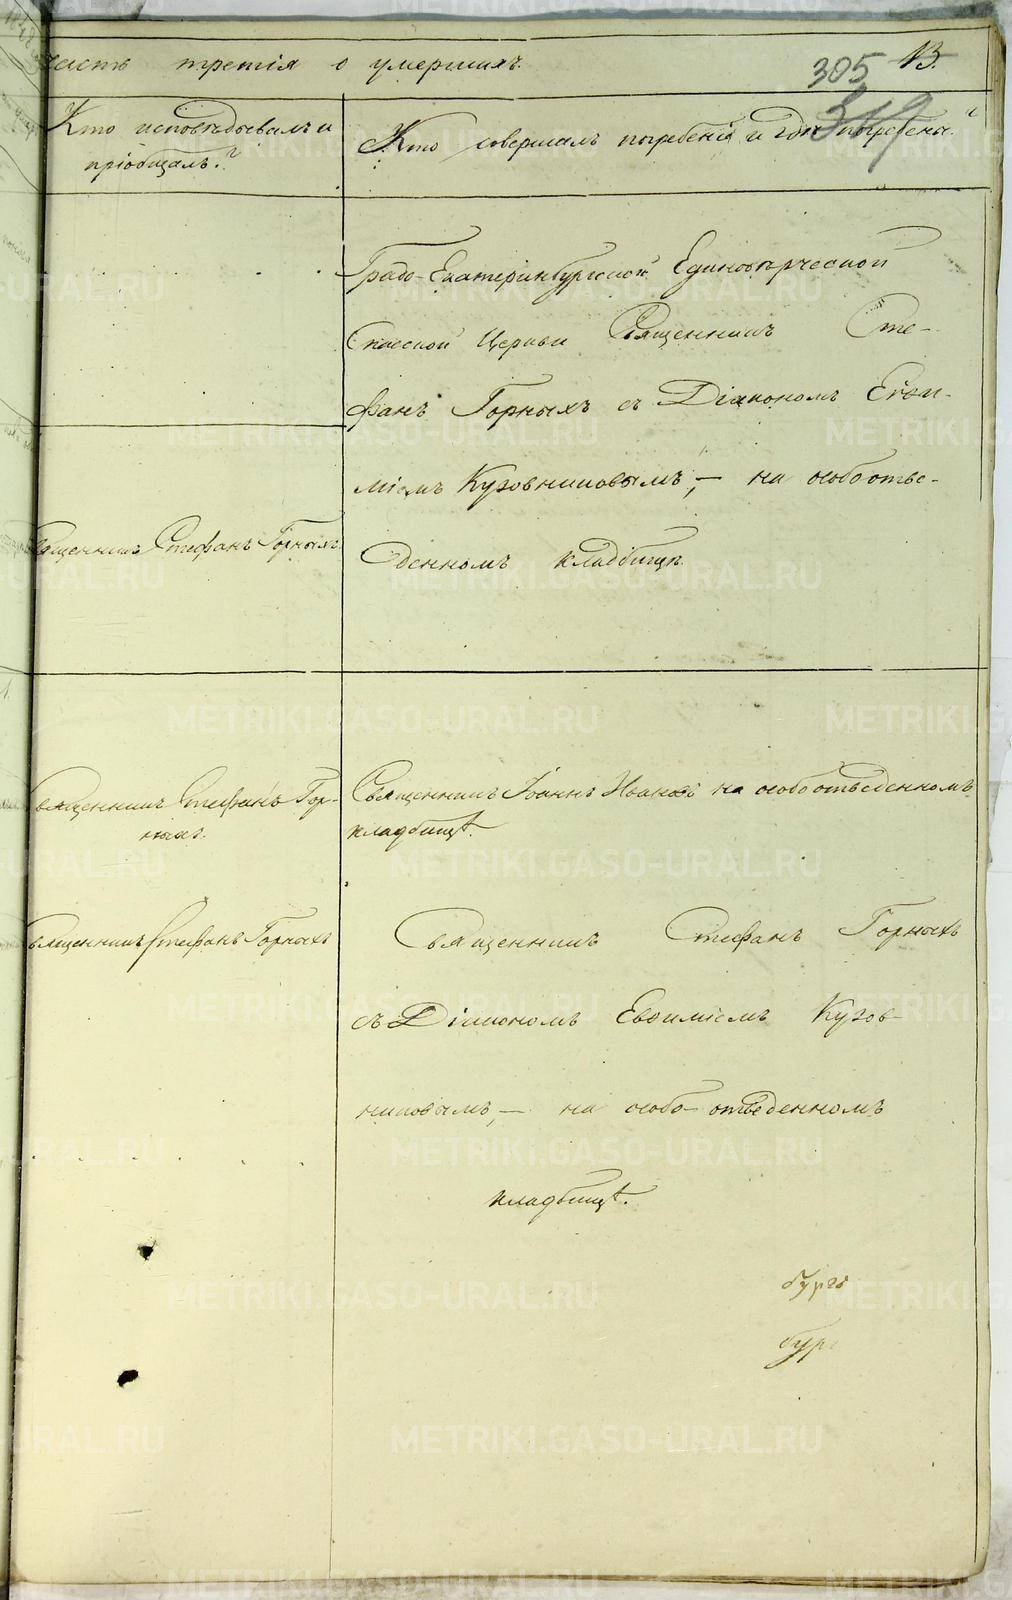 часть третія о умершихъ.
305 13.
319
Кто исповѣдывалъ и
пріобщалъ?
Кто совершалъ погребеніе и гдѣ погребены?
Градо-Екатеринбургской Единовѣрческой
Спасской Церкви Священникъ Сте-
фанъ Горныхъ съ Діакономъ Евѳи-
міемъ Кузовниковымъ, — на особо отве-
денномъ кладбищѣ.
Священникъ Стефанъ Горныхъ.
Священникъ Стефанъ Гор-
ныхъ.
Священникъ Іоаннъ Ивановъ на особо отведенномъ
кладбищѣ.
Священникъ Стефанъ Горныхъ
Священникъ Стефанъ Горныхъ
съ Діакономъ Евѳиміемъ Кузов-
никовымъ, — на особо-отведенномъ
кладбищѣ.
бургъ
бург
METRIKI.GASO-URAL.RU